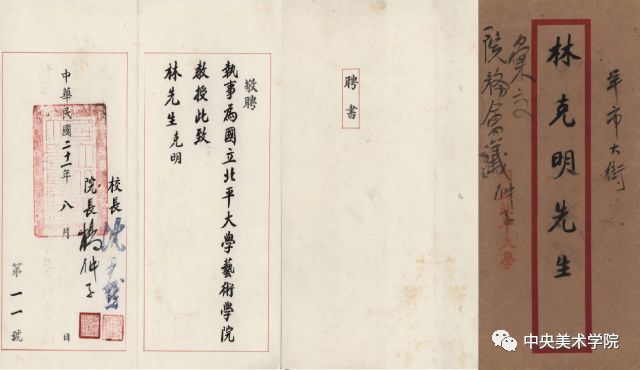 羊市大街
林克明先生
院務會議
大學
聘書
敬聘
執事為國立北平大學藝術學院
教授此致
林先生克明
中華民國二十一年八月 日
校長
院長楊仲子
第一一號
中央美术学院